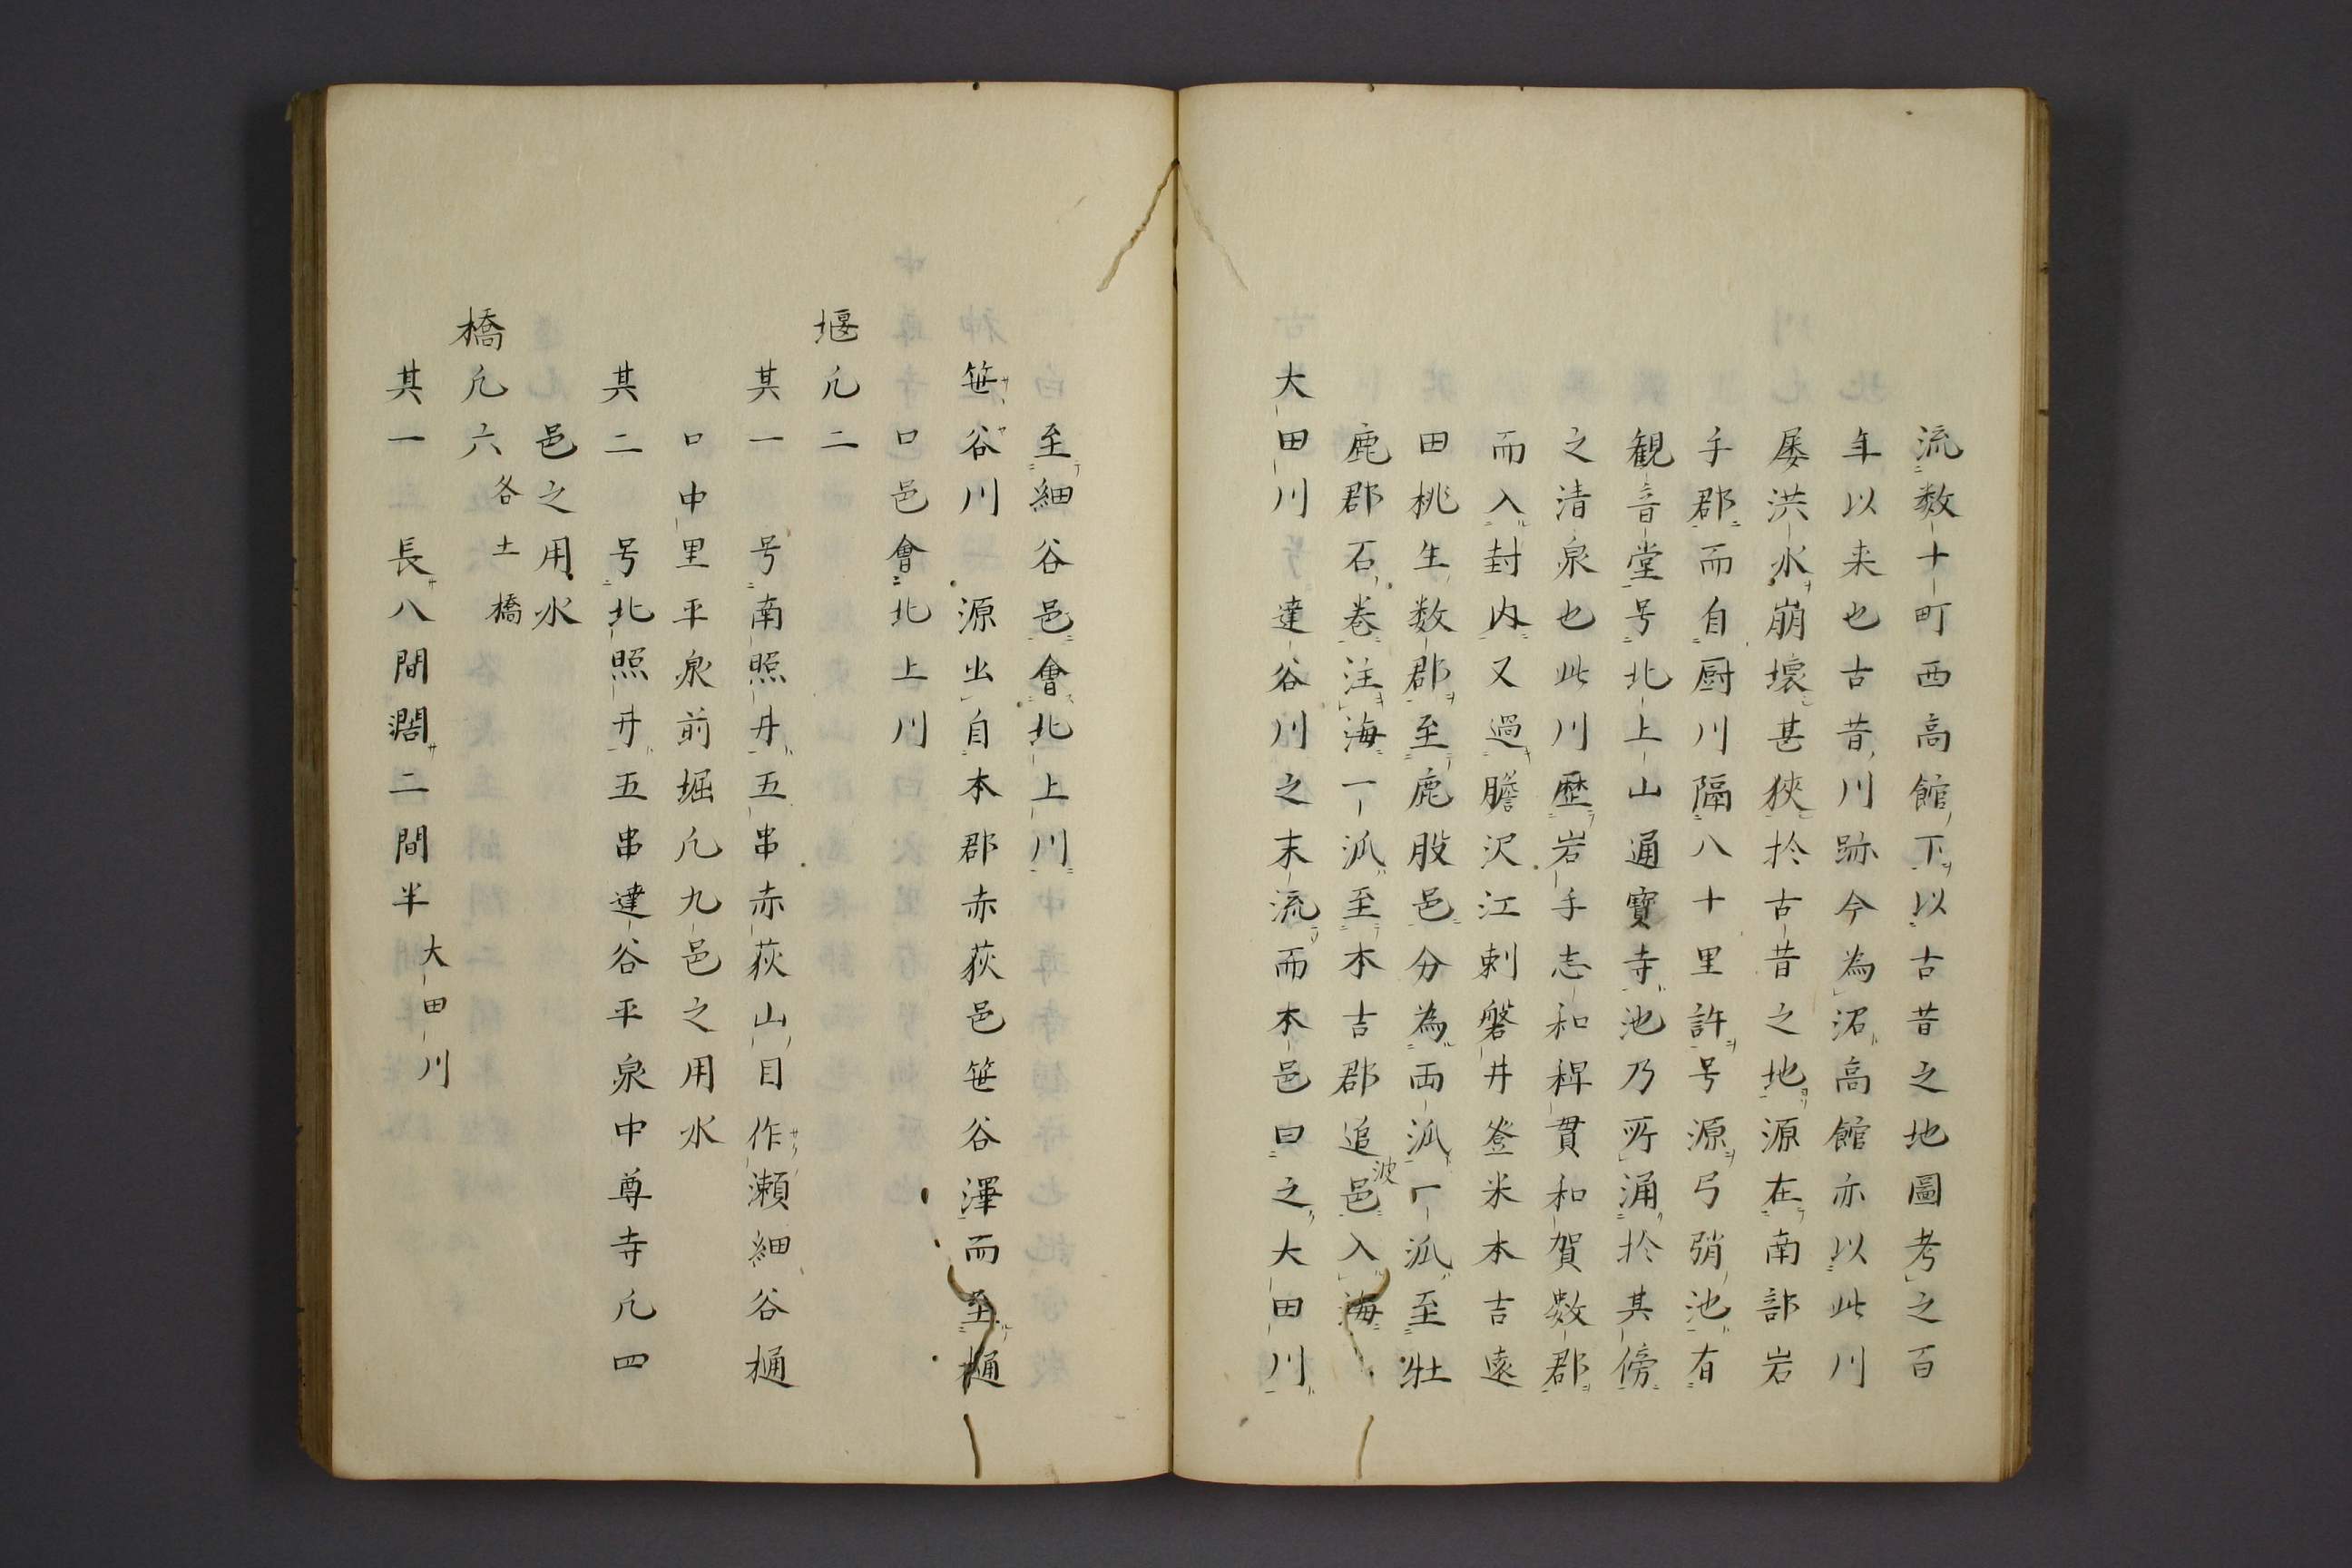 流数十町西高館下以古昔之地圖考之百
年以来也古昔川跡今為沼高館亦以此川
屡洪水崩壊甚狹於古昔之地源在南部岩
手郡而自厨川隔八十里許号源弓弰池有
観音堂号北上山通寶寺池乃所涌於其傍
之清泉也此川歴岩手志和稗貫和賀數郡
而入封内又過膽沢江刺磐井登米本吉遠
田桃生数郡至鹿股邑分為両派一派至牡
鹿郡石巻注海一派至本吉郡追波邑入海
大田川 達谷川之末流而本邑曰之大田川
至細谷邑會北上川
笹谷川 源出自本郡赤荻邑笹谷澤而至樋
口邑會北上川
堰凢二
其一 号南照井五串赤荻山目作瀬細谷樋
口中里平泉前堀凢九邑之用水
其二 号北照井五串達谷平泉中尊寺凢四
邑之用水
橋凢六 各土橋
其一 長八間濶二間半 大田川